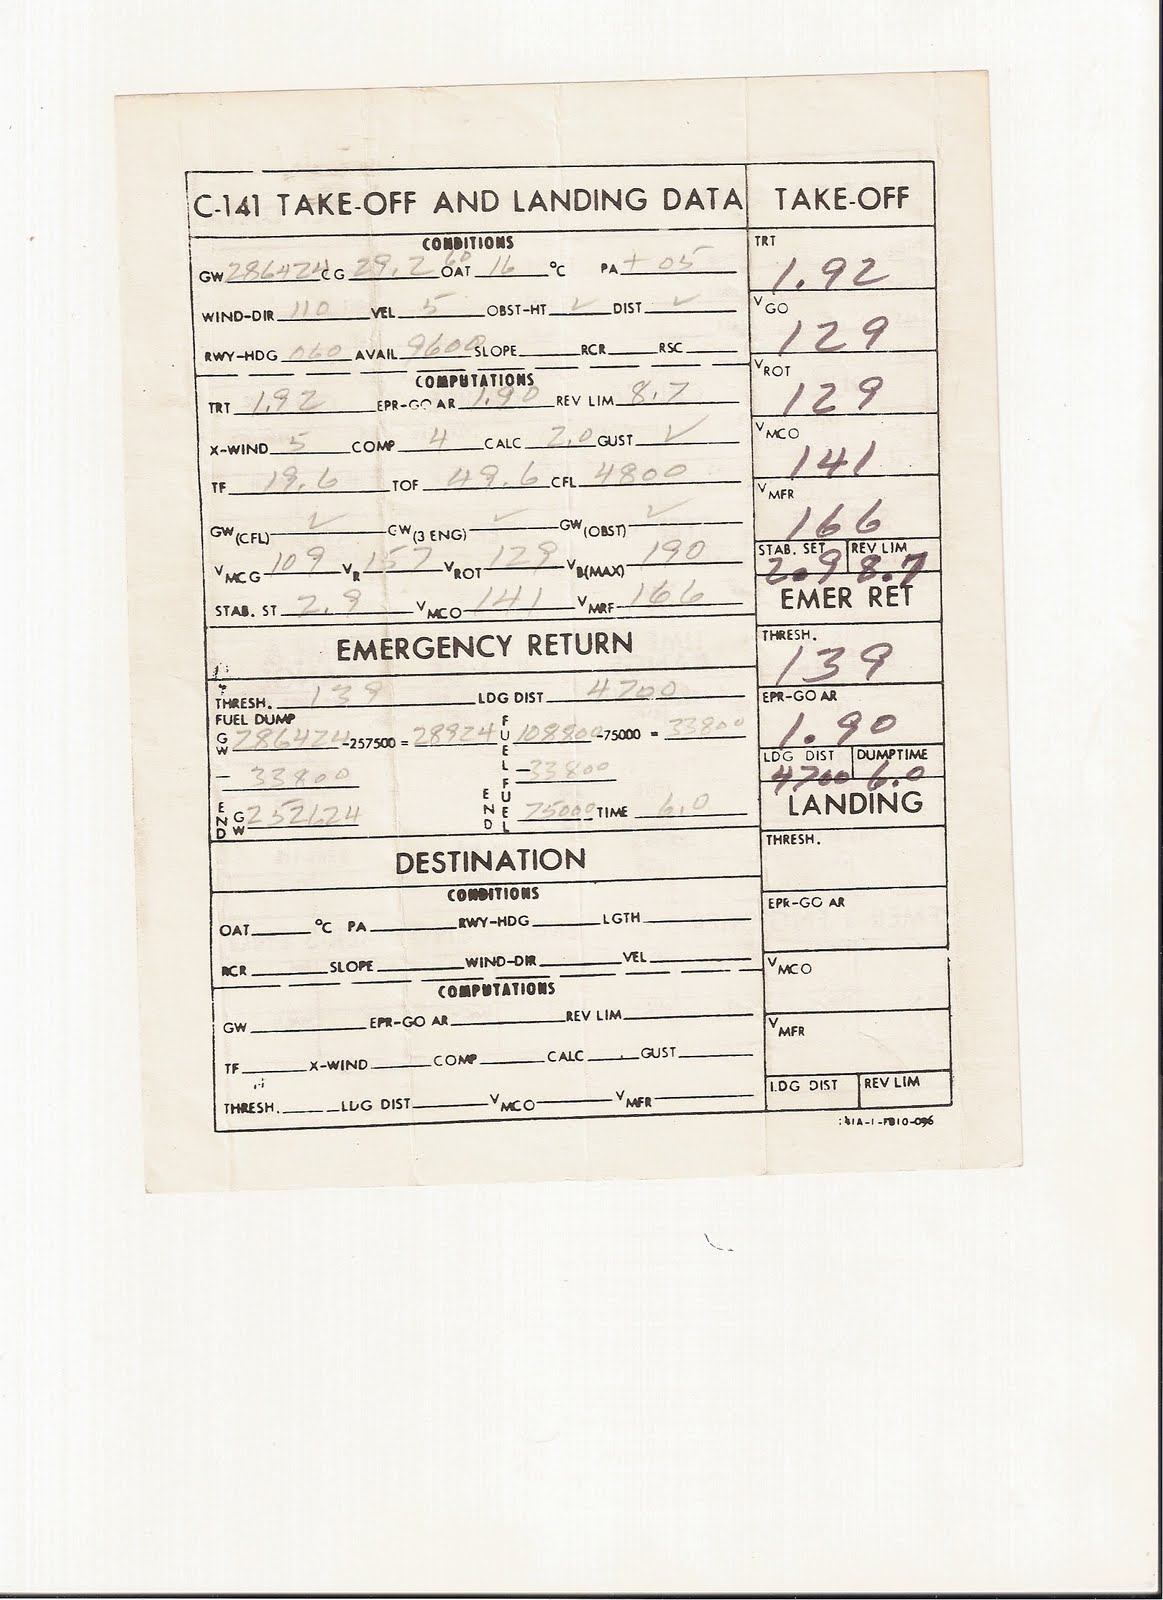 C-141 TAKE-OFF AND LANDING DATA
CONDITIONS
GW 286424 CG 29.2 OAT 60 16 °C PA + 05
WIND-DIR 110 VEL 5 OBST-HT ✓ DIST ✓
RWY-HDG 060 AVAIL 9600 SLOPE RCR RSC
COMPUTATIONS
TRT 1.92 EPR-GO AR 1.90 REV LIM 8.7
X-WIND 5 COMP 4 CALC 2.0 GUST ✓
TF 19.6 TOF 49.6 CFL 4800
GW(CFL) ✓ GW(3 ENG) ✓ GW(OBST) ✓
VMCG 109 VR 157 VROT 129 VB(MAX) 190
STAB. ST 2.9 VMCO 141 VMRF 166
EMERGENCY RETURN
THRESH. 139 LDG DIST 4700
FUEL DUMP
GW 286424 -257500 = 28924 FUEL 108800 -75000 = 33800
- 33800 - 33800
END GW 252624 END FUEL 75000 TIME 6.0
DESTINATION
CONDITIONS
OAT °C PA RWY-HDG LGTH
RCR SLOPE WIND-DIR VEL
COMPUTATIONS
GW EPR-GO AR REV LIM
TF X-WIND COMP CALC GUST
THRESH. LDG DIST VMCO VMFR
TAKE-OFF
TRT
1.92
VGO
129
VROT
129
VMCO
141
VMFR
166
STAB. SET REV LIM
2.9 8.7
EMER RET
THRESH.
139
EPR-GO AR
1.90
LDG DIST DUMPTIME
4700 6.0
LANDING
THRESH.
EPR-GO AR
VMCO
VMFR
LDG DIST REV LIM